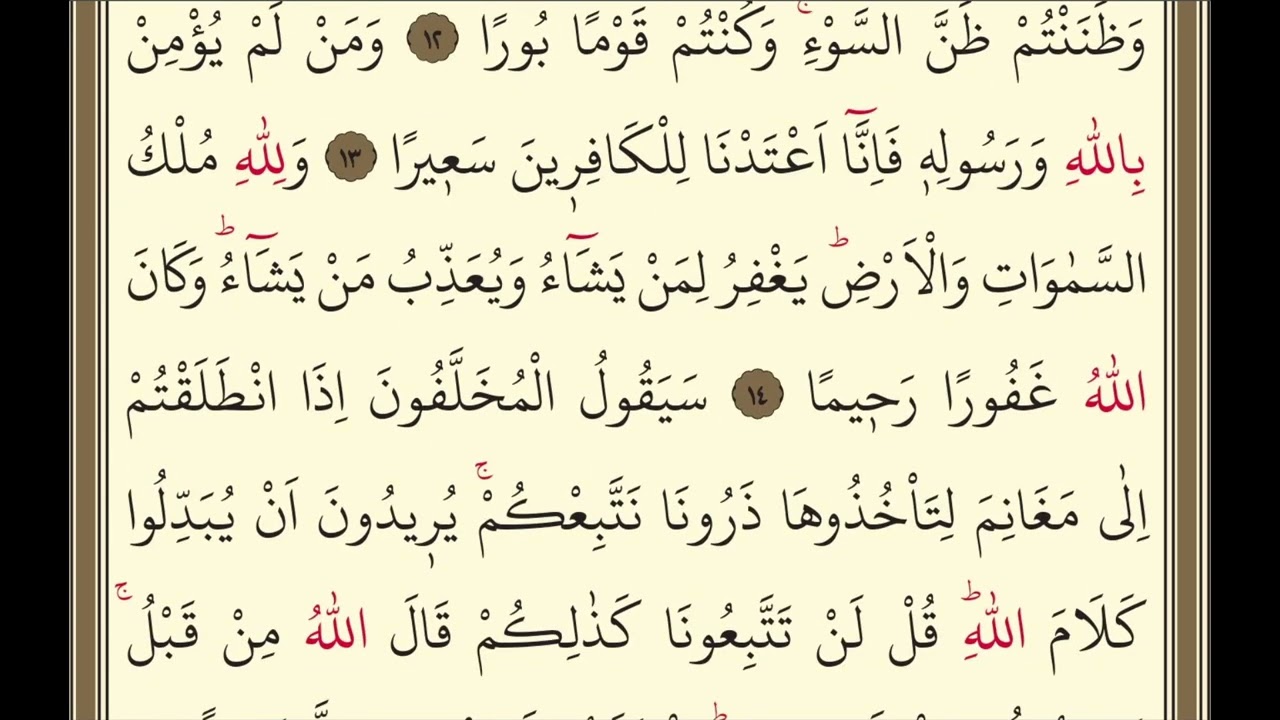 وَظَنَنْتُمْ ظَنَّ السَّوْءِۚ وَكُنْتُمْ قَوْمًا بُورًا ١٢ وَمَنْ لَمْ يُؤْمِنْ
بِاللّٰهِ وَرَسُولِه۪ فَاِنَّٓا اَعْتَدْنَا لِلْكَافِر۪ينَ سَع۪يرًا ١٣ وَلِلّٰهِ مُلْكُ
السَّمٰوَاتِ وَالْاَرْضِۜ يَغْفِرُ لِمَنْ يَشَٓاءُ وَيُعَذِّبُ مَنْ يَشَٓاءُۜ وَكَانَ
اللّٰهُ غَفُورًا رَح۪يمًا ١٤ سَيَقُولُ الْمُخَلَّفُونَ اِذَا انْطَلَقْتُمْ
اِلٰى مَغَانِمَ لِتَأْخُذُوهَا ذَرُونَا نَتَّبِعْكُمْۚ يُر۪يدُونَ اَنْ يُبَدِّلُوا
كَلَامَ اللّٰهِۜ قُلْ لَنْ تَتَّبِعُونَا كَذٰلِكُمْ قَالَ اللّٰهُ مِنْ قَبْلُۚ